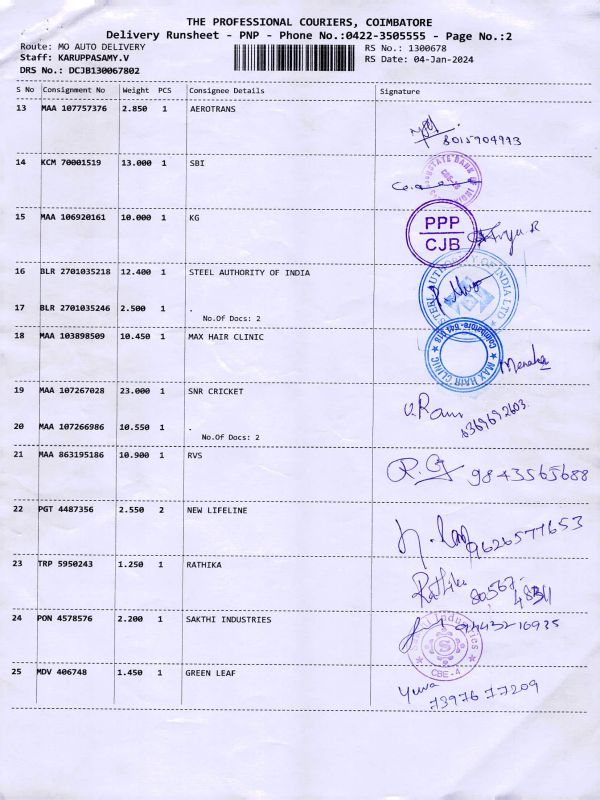 THE PROFESSIONAL COURIERS, COIMBATORE
Delivery Runsheet - PNP - Phone No.:0422-3505555 - Page No.:2
Route: MO AUTO DELIVERY RS No.: 1300678
Staff: KARUPPASAMY.V RS Date: 04-Jan-2024
DRS No.: DCJB130067802
S No Consignment No Weight PCS Consignee Details Signature
13 MAA 107757376 2.850 1 AEROTRANS
8015904993
14 KCM 70001519 13.000 1 SBI
STATE BANK OF INDIA
15 MAA 106920161 10.000 1 KG
PPP
CJB
16 BLR 2701035218 12.400 1 STEEL AUTHORITY OF INDIA
STEEL AUTHORITY OF INDIA LTD
17 BLR 2701035246 2.500 1 .
No.Of Docs: 2
18 MAA 103898509 10.450 1 MAX HAIR CLINIC
MAX HAIR CLINIC
Menaka
19 MAA 107267028 23.000 1 SNR CRICKET
V.Ram
6369692603
20 MAA 107266986 10.550 1 .
No.Of Docs: 2
21 MAA 863195186 10.900 1 RVS
9843565688
22 PGT 4487356 2.550 2 NEW LIFELINE
9626577653
23 TRP 5950243 1.250 1 RATHIKA
Rathika
24 PON 4578576 2.200 1 SAKTHI INDUSTRIES
Sakthi Industries
CBE-4
25 MDV 406748 1.450 1 GREEN LEAF
Yuva
7397677209